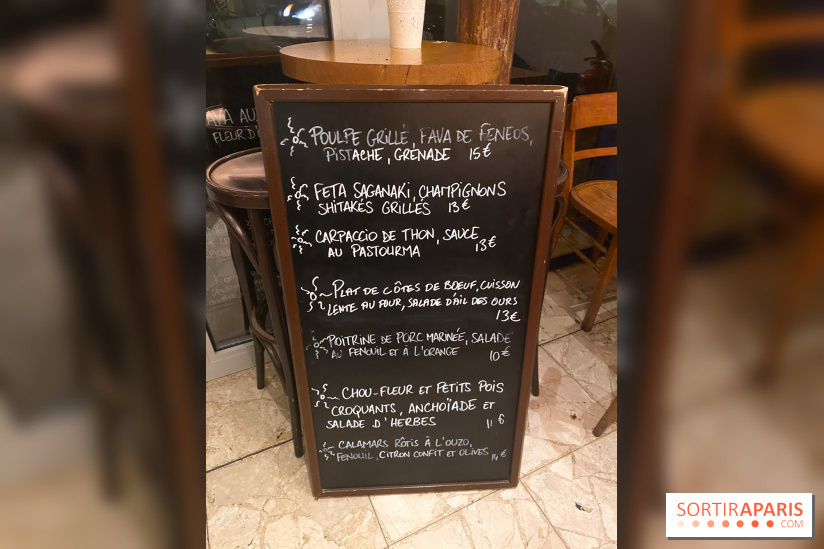 AVA AU
FLEUR D'
POULPE GRILLÉ, FAVA DE FENEOS,
PISTACHE, GRENADE 15€
FETA SAGANAKI, CHAMPIGNONS
SHITAKÉS GRILLÉS 13€
CARPACCIO DE THON, SAUCE
AU PASTOURMA 13€
PLAT DE CÔTES DE BOEUF, CUISSON
LENTE AU FOUR, SALADE D'AIL DES OURS
13€
POITRINE DE PORC MARINÉE, SALADE
AU FENOUIL ET À L'ORANGE 10€
CHOU-FLEUR ET PETITS POIS
CROQUANTS, ANCHOÏADE ET
SALADE D'HERBES 11€
CALAMARS RÔTIS À L'OUZO,
FENOUIL, CITRON CONFIT ET OLIVES 14€
SORTIRAPARIS
.COM